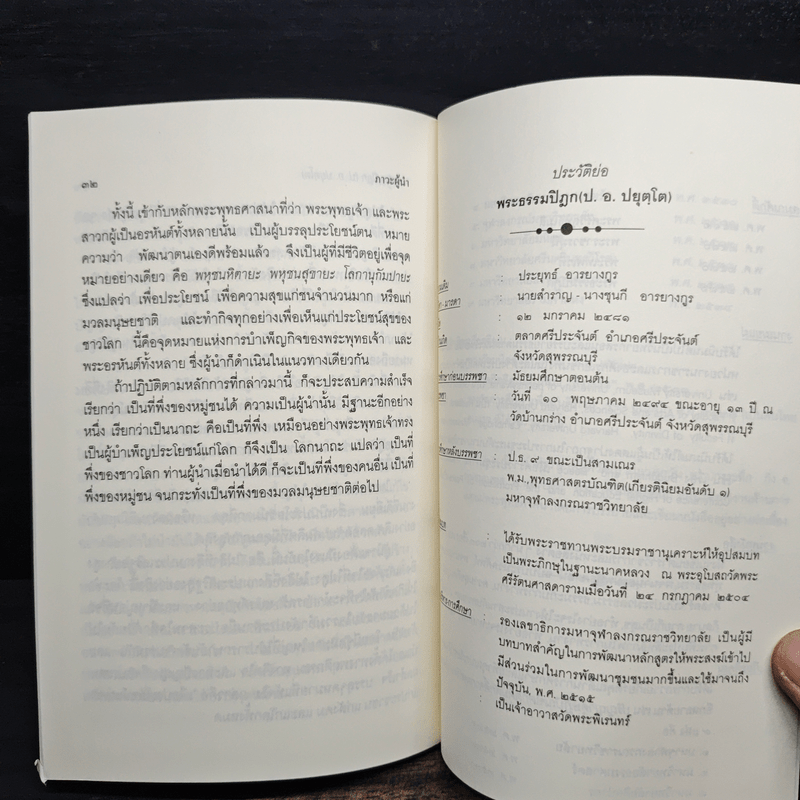 ๓๒
ภาวะผู้นำ
ทั้งนี้ เข้ากับหลักพระพุทธศาสนาที่ว่า พระพุทธเจ้า และพระ
สาวกผู้เป็นอรหันต์ทั้งหลายนั้น เป็นผู้บรรลุประโยชน์ตน หมาย
ความว่า พัฒนาตนเองดีพร้อมแล้ว จึงเป็นผู้ที่มีชีวิตอยู่เพื่อจุด
หมายอย่างเดียว คือ พหุชนหิตายะ พหุชนสุขายะ โลกานุกัมปายะ
ซึ่งแปลว่า เพื่อประโยชน์ เพื่อความสุขแก่ชนจำนวนมาก หรือแก่
มวลมนุษยชาติ และทำกิจทุกอย่างเพื่อเห็นแก่ประโยชน์สุขของ
ชาวโลก นี้คือจุดหมายแห่งการบำเพ็ญกิจของพระพุทธเจ้า และ
พระอรหันต์ทั้งหลาย ซึ่งผู้นำก็ดำเนินในแนวทางเดียวกัน
ถ้าปฏิบัติตามหลักการที่กล่าวมานี้ ก็จะประสบความสำเร็จ
เรียกว่า เป็นที่พึ่งของหมู่ชนได้ ความเป็นผู้นำนั้น มีฐานะอีกอย่าง
หนึ่ง เรียกว่าเป็นนาถะ คือเป็นที่พึ่ง เหมือนอย่างพระพุทธเจ้าทรง
เป็นผู้บำเพ็ญประโยชน์แก่โลก ก็จึงเป็น โลกนาถะ แปลว่า เป็นที่
พึ่งของชาวโลก ท่านผู้นำเมื่อนำได้ดี ก็จะเป็นที่พึ่งของคนอื่น เป็นที่
พึ่งของหมู่ชน จนกระทั่งเป็นที่พึ่งของมวลมนุษยชาติต่อไป
ประวัติย่อ
พระธรรมปิฎก(ป. อ. ปยุตฺโต)
: ประยุทธ์ อารยางกูร
- มารดา : นายสำราญ - นางชุนกี อารยางกูร
: ๑๒ มกราคม ๒๔๘๑
: ตลาดศรีประจันต์ อำเภอศรีประจันต์
จังหวัดสุพรรณบุรี
ศึกษาก่อนบรรพชา : มัธยมศึกษาตอนต้น
: วันที่ ๑๐ พฤษภาคม ๒๔๙๔ ขณะอายุ ๑๓ ปี ณ
วัดบ้านกร่าง อำเภอศรีประจันต์ จังหวัดสุพรรณบุรี
ศึกษาหลังบรรพชา : ป.ธ. ๙ ขณะเป็นสามเณร
พ.ม.,พุทธศาสตรบัณฑิต(เกียรตินิยมอันดับ ๑)
มหาจุฬาลงกรณราชวิทยาลัย
: ได้รับพระราชทานพระบรมราชานุเคราะห์ให้อุปสมบท
เป็นพระภิกษุในฐานะนาคหลวง ณ พระอุโบสถวัดพระ
ศรีรัตนศาสดารามเมื่อวันที่ ๒๔ กรกฎาคม ๒๕๐๔
การศึกษา : รองเลขาธิการมหาจุฬาลงกรณราชวิทยาลัย เป็นผู้มี
บทบาทสำคัญในการพัฒนาหลักสูตรให้พระสงฆ์เข้าไป
มีส่วนร่วมในการพัฒนาชุมชนมากขึ้นและใช้มาจนถึง
ปัจจุบัน, พ.ศ. ๒๕๑๕
: เป็นเจ้าอาวาสวัดพระพิเรนทร์